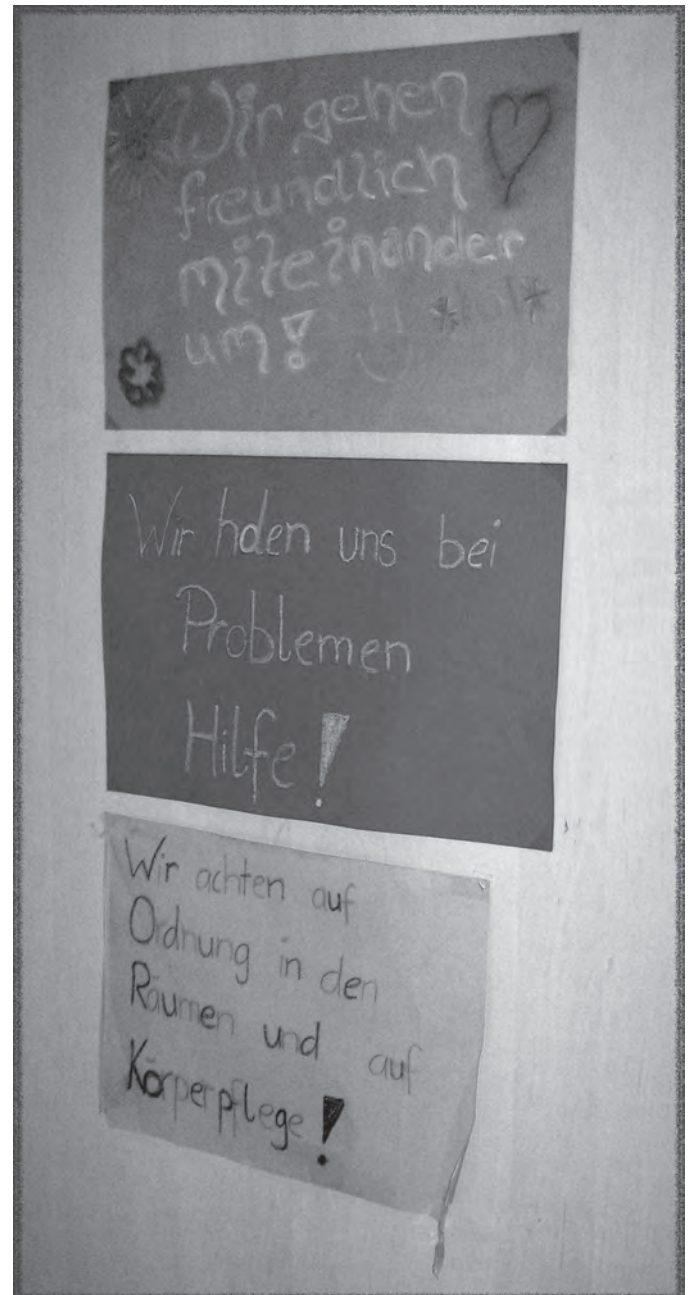 Wir gehen
freundlich
miteinander
um! *lol*
Wir holen uns bei
Problemen
Hilfe!
Wir achten auf
Ordnung in den
Räumen und auf
Körperpflege!